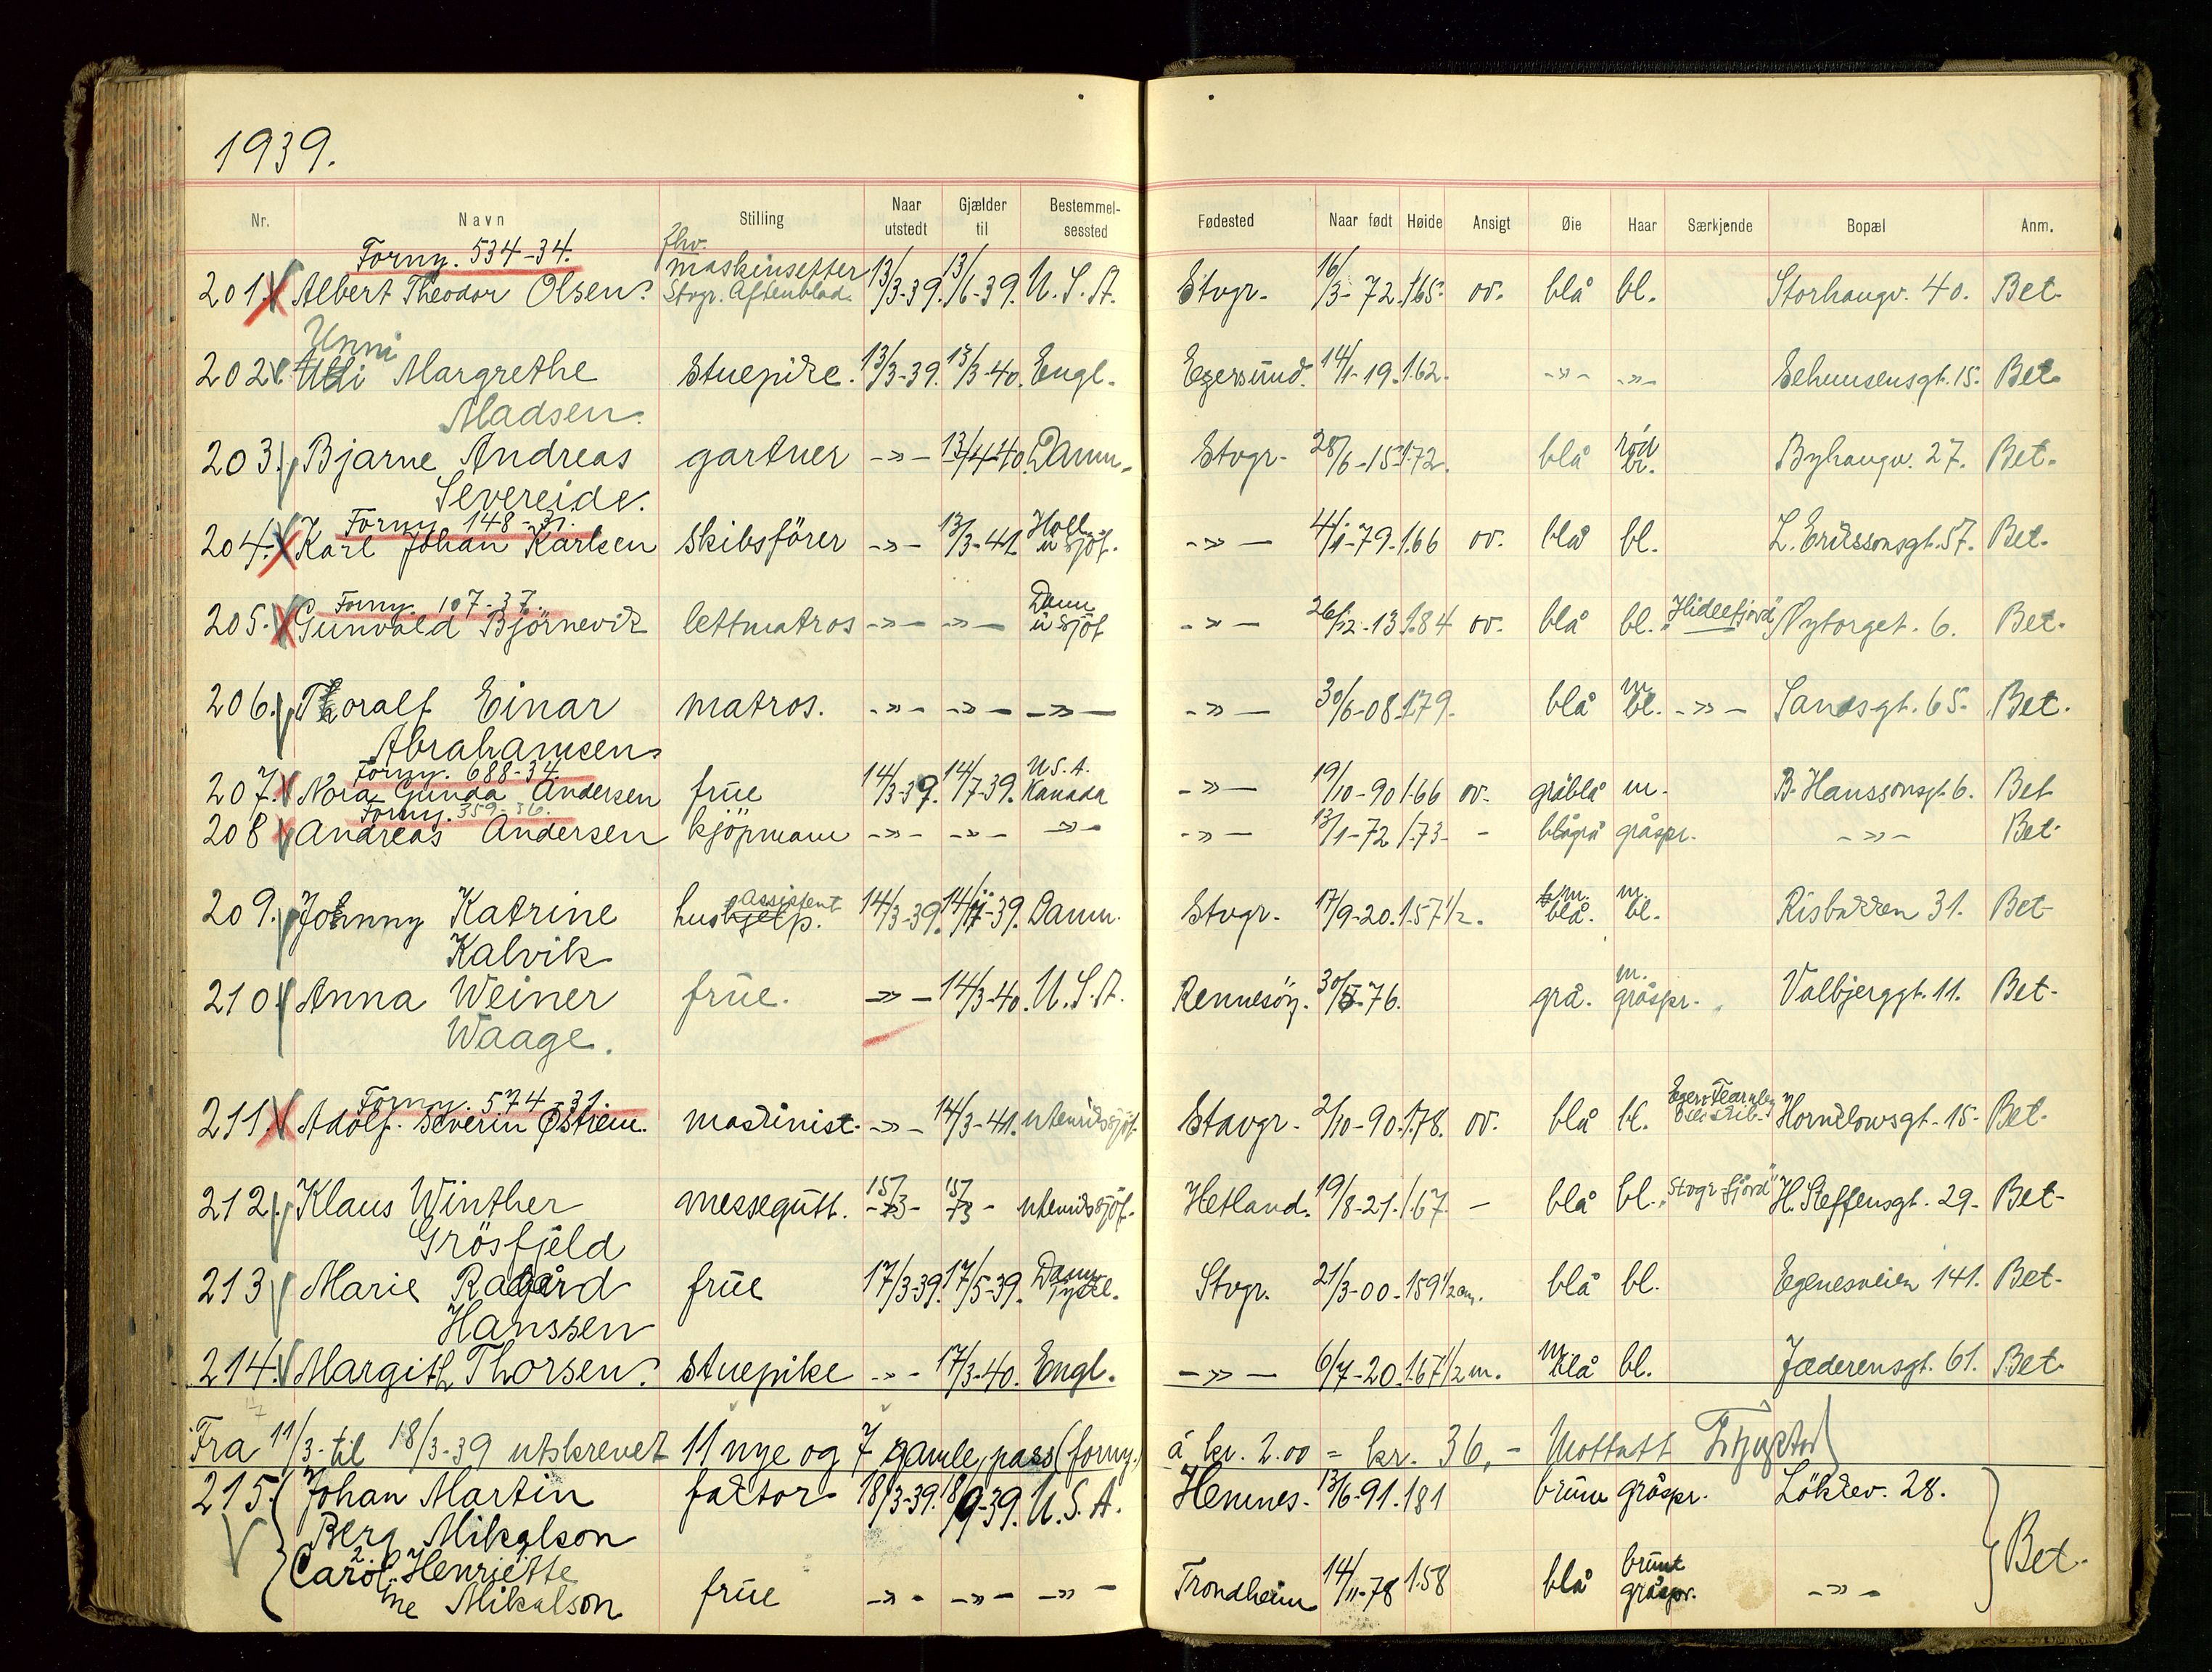 1939.
Nr. Navn Stilling Naar utstedt Gjælder til Bestemmelsessted Fødested Naar født Høide Ansigt Øie Haar Særkjende Bopæl Anm.
Forny. 534-34. fhv.
201. Albert Theodor Olsen. maskinsetter Stvgr. Aftenblad. 13/3-39. 13/6-39. U.S.A. Stvgr. 16/3-72. 165 ov. blå bl. Storhaugv. 40. Bet.
Unni
202. Margrethe stuepike. 13/3-39. 13/3-40. Engl. Egersund. 14/1-19. 1.62. -»- -»- 15. Bet.
Madsen.
203. Bjarne Andreas gartner -»- 13/4-40. Danm. Stvgr. 28/6-15. 1.72. blå rød br. Byhaugv. 27. Bet.
Severeide.
Forny. 148-31.
204. Karl Johan Karlsen skibsfører -»- 13/3-41. Holl. u sjöf. -»- 4/1-79. 1.66 ov. blå bl. L. Erikssonsgt. 57. Bet.
Forny. 107-37.
205. Gunvald Björnevik lettmatros -»- -»- Danm u sjöf -»- 26/12-13. 1.84 ov. blå bl. Nytorget. 6. Bet.
206. Thoralf Einar matros. -»- -»- -»- -»- 30/6-08. 1.79. blå m. bl. -»- Sandsgt. 65. Bet.
Abrahamsen
Forny. 688-34.
207. Nora Gunda Andersen frue 14/3-39. 14/7-39. U.S.A. Kanada -»- 19/10-90 1.66 ov. gråblå m. B. Hanssonsgt. 6. Bet
Forny. 359-36.
208 Andreas Andersen kjöpmann -»- -»- -»- -»- 13/1-72 1.73 - blågrå gråspr. -»- Bet.
209. Johnny Katrine husassistent 14/3-39. 14/ -39. Danm. Stvgr. 17/9-20. 1.57½. m. blå. m. bl. Risbakken 31. Bet.
Kalvik
210. Anna Weiner frue. -»- 14/3-40. U.S.A. Rennesöy. 30/ -76. grå. m. gråspr. Valbjerggt. 11. Bet.
Waage.
Forny. 574-31.
211. Adolf. Severin Østrem. maskinist. -»- 14/3-41. utenriksjöf. Stavgr. 2/10-90. 1.78. ov. blå bl. Horneklowsgt. 15. Bet.
212. Klaus Winther messegutt. 15/3- 15/3- utenriksjöf. Hetland. 19/8-21. 1.67. - blå bl. „Stvgr fjord" H. Steffensgt. 29. Bet.
Grösfjeld
213 Marie frue 17/3-39. 17/5-39. Danm. Tyskl. Stvgr. 21/3-00. 159½ cm. blå bl. Egenesveien 141. Bet.
Hanssen
214. Margith Thorsen. stuepike -»- 17/3-40. Engl. -»- 6/7-20. 1.67½ m. m blå bl. Jæderensgt. 61. Bet.
Fra 11/3 til 18/3-39 utskrevet 11 nye og 7 gamle pass (forny.) á kr. 2.00 = kr. 36,- Mottatt
215. Johan Martin faktor 18/3-39. 18/9-39. U.S.A. Hemnes. 13/6-91. 181 brune gråspr. Lökkev. 28.
Berg Mikalson
Caroline Henriette Bet.
Mikalson frue -»- -»- -»- Trondheim 14/11-78 1.58 blå brunt gråspr. -»-